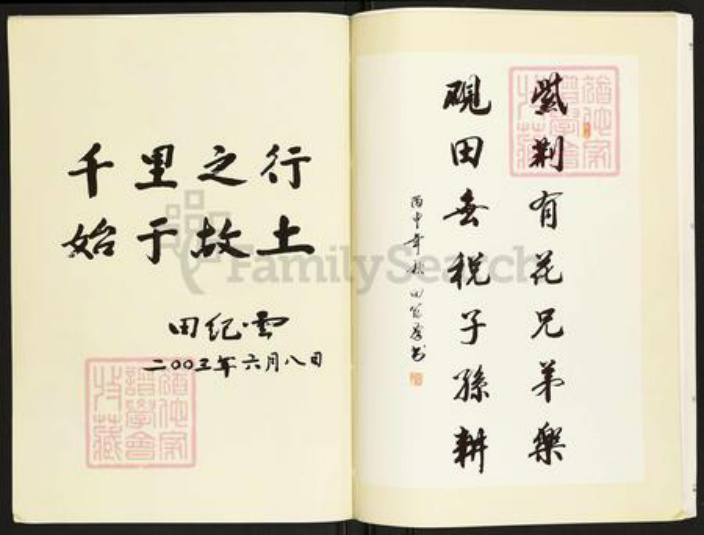 千里之行
始于故土
田纪云
二00三年六月八日
紫荆有花兄弟樂
硯田無税子孫耕
丙申年秋田
FamilySearch